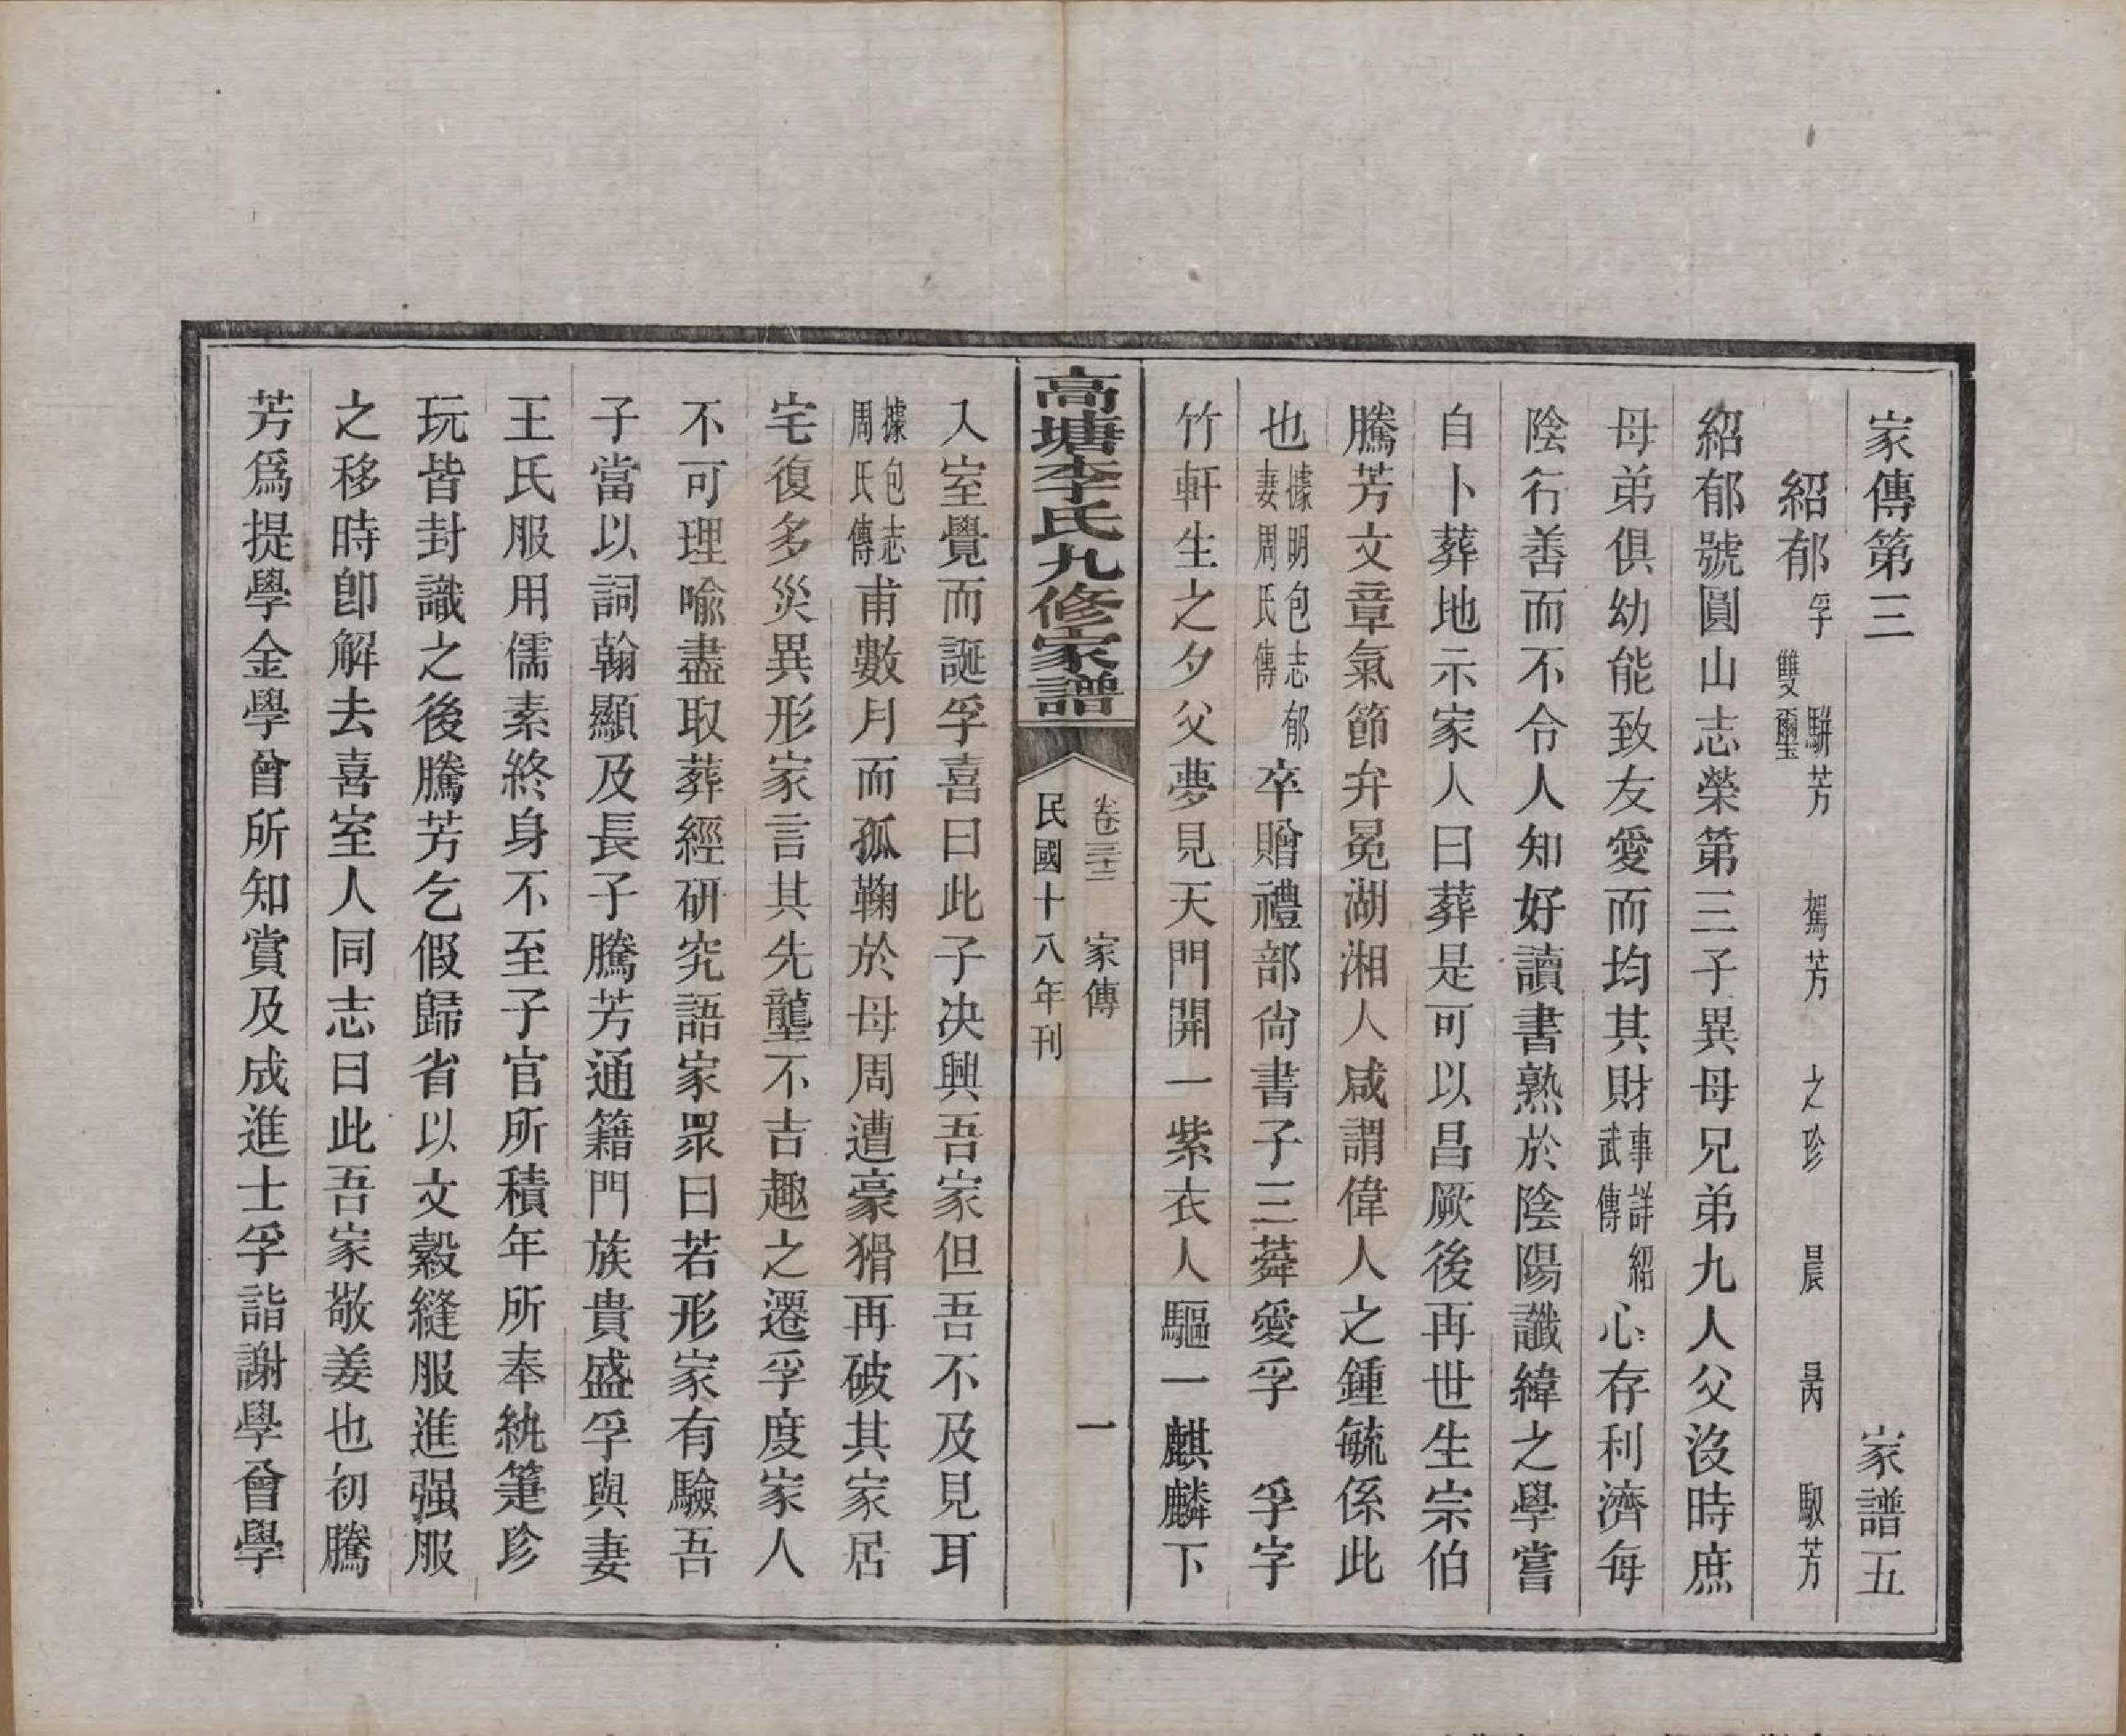 家傳第三 家譜五
紹郁 孚 雙璽 騈芳 駕芳 之珍 晨 昺 馭芳
紹郁號圓山志榮第三子異母兄弟九人父沒時庶
母弟俱幼能致友愛而均其財事詳紹武傳心存利濟每
陰行善而不令人知好讀書熟於陰陽讖緯之學嘗
自卜葬地示家人曰葬是可以昌厥後再世生宗伯
騰芳文章氣節弁冕湖湘人咸謂偉人之鍾毓係此
也據明包志郁妻周氏傳卒贈禮部尙書子三蕣愛孚 孚字
竹軒生之夕父夢見天門開一紫衣人驅一麒麟下
高塘李氏九修家譜
卷三十三 家傳 一
民國十八年刊
入室覺而誕孚喜曰此子决興吾家但吾不及見耳
據包志周氏傳甫數月而孤鞠於母周遭豪猾再破其家居
宅復多災異形家言其先壟不吉趣之遷孚度家人
不可理喩盡取葬經研究語家眾曰若形家有驗吾
子當以詞翰顯及長子騰芳通籍門族貴盛孚與妻
王氏服用儒素終身不至子官所積年所奉紈箑珍
玩皆封識之後騰芳乞假歸省以文縠縫服進强服
之移時卽解去喜室人同志曰此吾家敬姜也初騰
芳爲提學金學曾所知賞及成進士孚詣謝學曾學